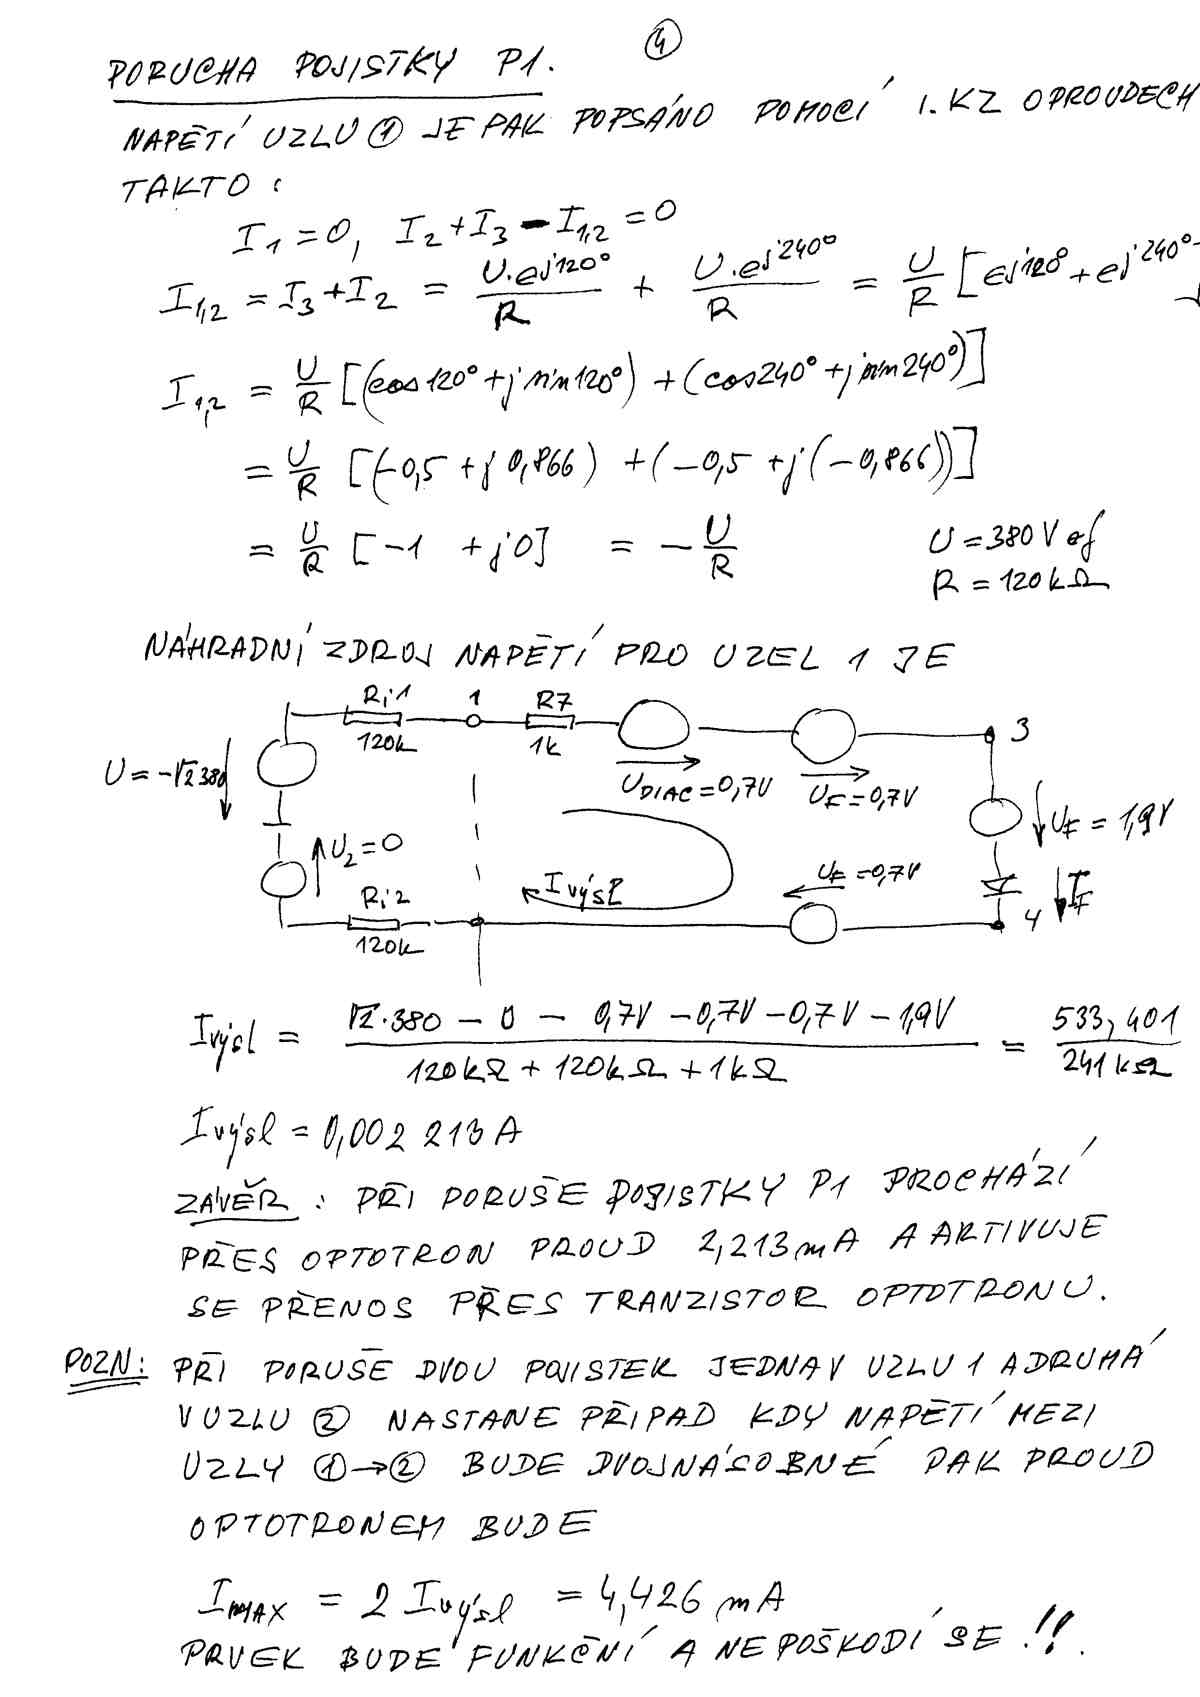 ④
PORUCHA POJISTKY P1.
NAPĚTÍ UZLU ① JE PAK POPSÁNO POMOCÍ 1.KZ O PROUDECH
TAKTO:
I1 = 0, I2 + I3 - I1,2 = 0
I1,2 = I3 + I2 = U.ej120°/R + U.ej240°/R = U/R [ej120° + ej240°
I1,2 = U/R [(cos120° + j sin120°) + (cos240° + j sin240°)]
= U/R [(-0,5 + j0,866) + (-0,5 + j(-0,866))]
= U/R [-1 + j0] = - U/R
U = 380V ef
R = 120kΩ
NÁHRADNÍ ZDROJ NAPĚTÍ PRO UZEL 1 JE
Ri1 1 R7
120k 1k 3
U = -√2 380
UDIAC = 0,7V UF = 0,7V
UF = 1,9V
U2 = 0
UF = 0,7V
Ivýsl
IF
Ri2
120k
4
Ivýsl = √2.380 - 0 - 0,7V - 0,7V - 0,7V - 1,9V / 120kΩ + 120kΩ + 1kΩ = 533,401 / 241kΩ
Ivýsl = 0,002 213 A
ZÁVĚR: PŘI PORUŠE POJISTKY P1 PROCHÁZÍ
PŘES OPTOTRON PROUD 2,213mA A ARTIVUJE
SE PŘENOS PŘES TRANZISTOR OPTOTRONU.
POZN: PŘI PORUŠE DVOU POJISTEK JEDNA V UZLU 1 A DRUHÁ
V UZLU ② NASTANE PŘIPAD KDY NAPĚTÍ MEZI
UZLY ①→② BUDE DVOJNÁSOBNÉ PAK PROUD
OPTOTRONEM BUDE
IMAX = 2 Ivýsl = 4,426 mA
PRVEK BUDE FUNKČNÍ A NEPOŠKODÍ SE !!.